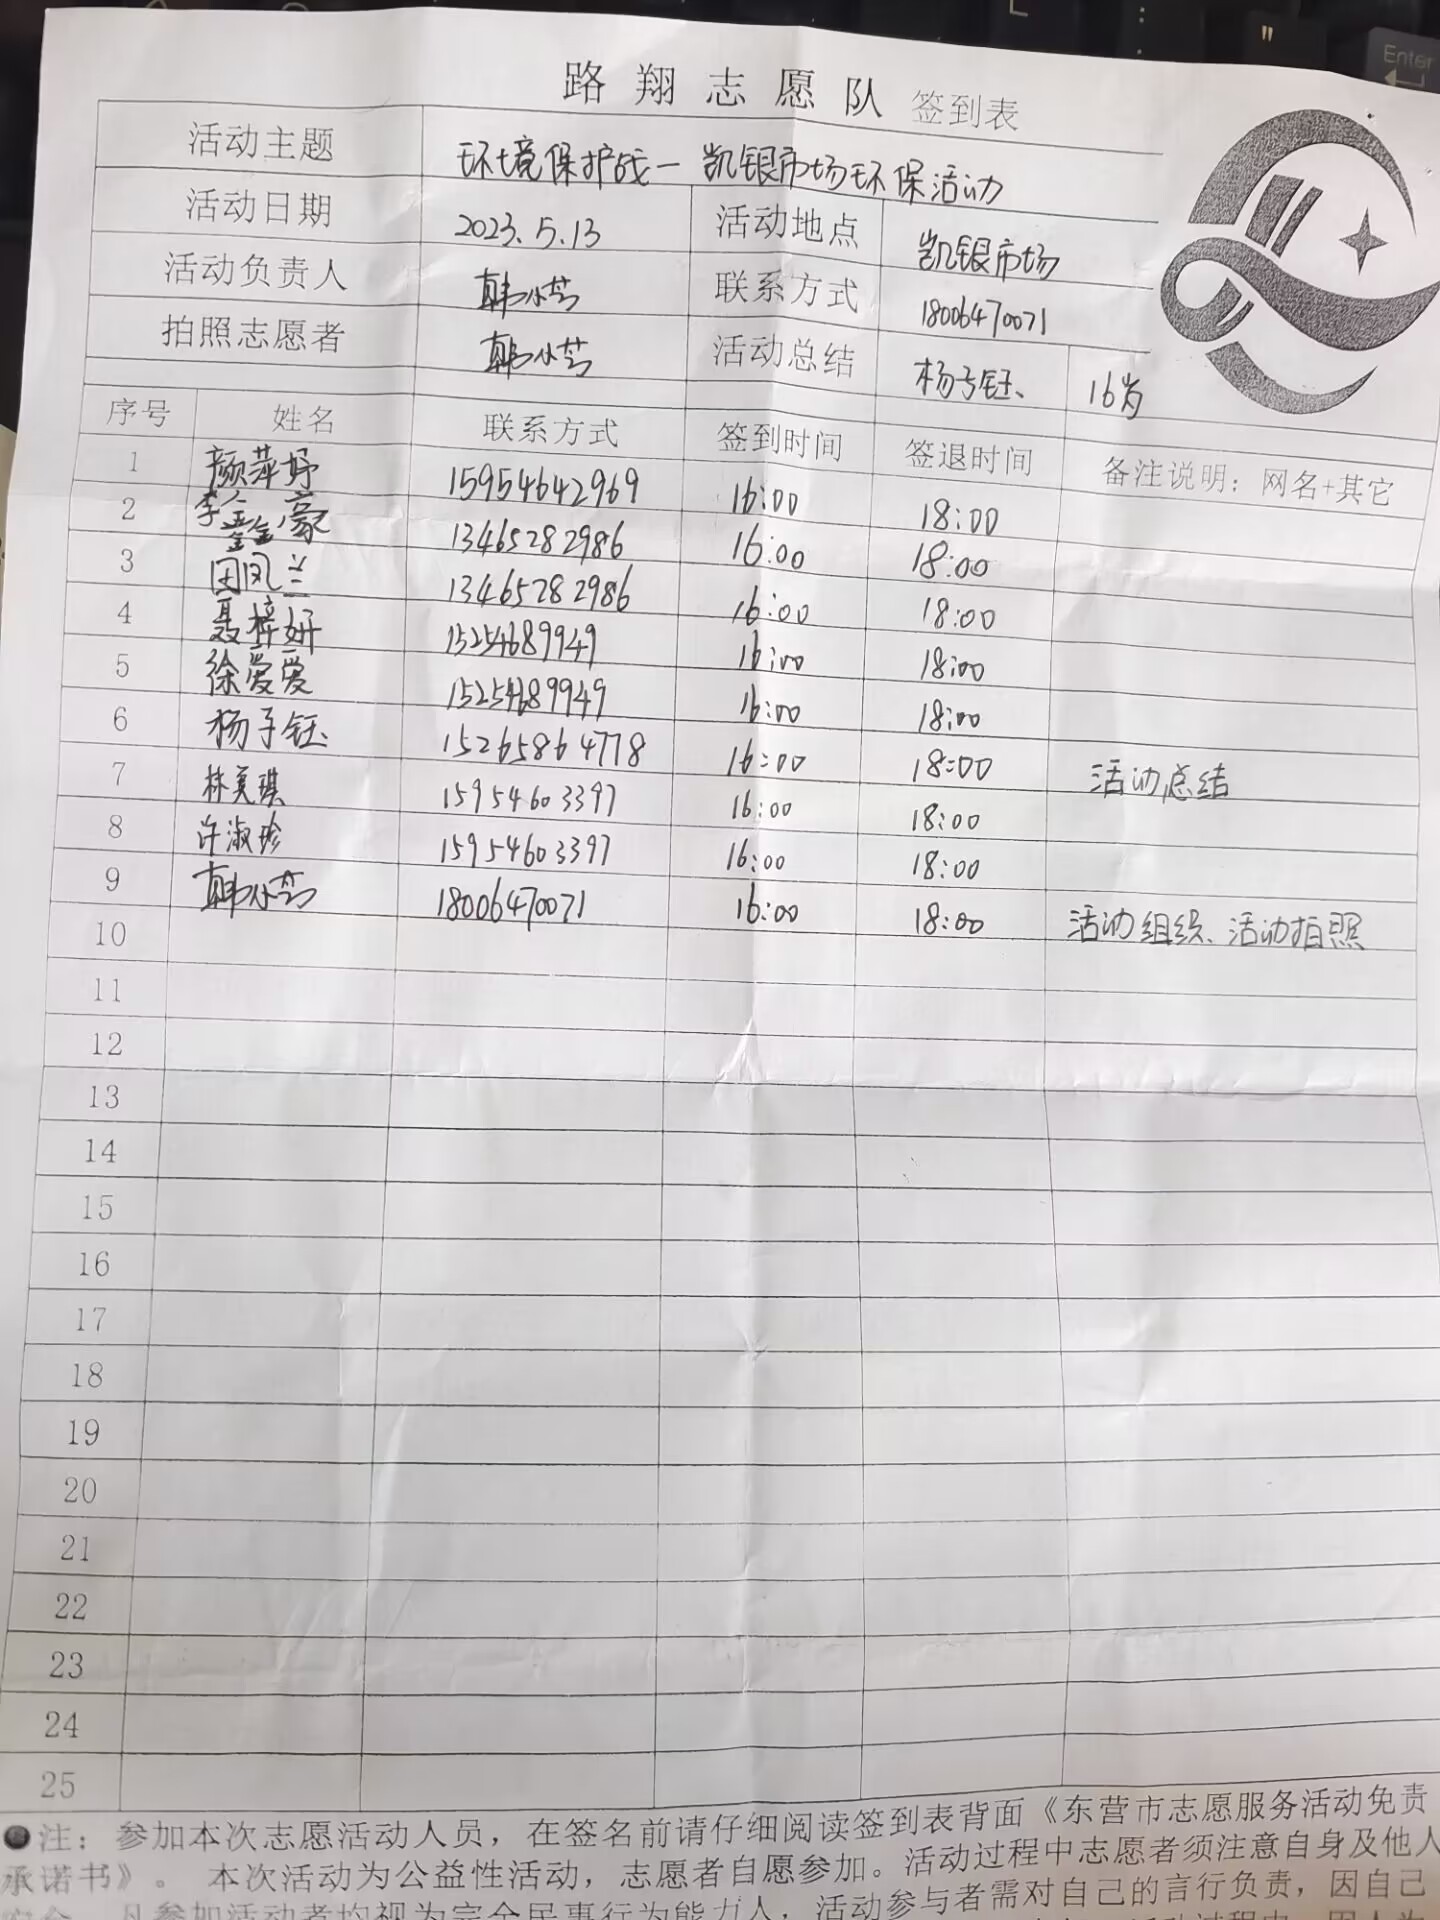 路翔志愿队 签到表
活动主题 环境保护战一凯银市场环保活动
活动日期 2023.5.13 活动地点 凯银市场
活动负责人 韩小芳 联系方式 18006470071
拍照志愿者 韩小芳 活动总结 杨子钰、 16岁
序号 姓名 联系方式 签到时间 签退时间 备注说明：网名+其它
1 颜萍妤 15954642969 16:00 18:00
2 李鑫豪 13465282986 16:00 18:00
3 田凤兰 13465282986 16:00 18:00
4 聂梓妍 15254689949 16:00 18:00
5 徐爱爱 15254689949 16:00 18:00
6 杨子钰 15265864778 16:00 18:00 活动总结
7 林美琪 15954603397 16:00 18:00
8 许淑珍 15954603397 16:00 18:00
9 韩小芳 18006470071 16:00 18:00 活动组织、活动拍照
10
11
12
13
14
15
16
17
18
19
20
21
22
23
24
25
●注：参加本次志愿活动人员，在签名前请仔细阅读签到表背面《东营市志愿服务活动免责
承诺书》。 本次活动为公益性活动，志愿者自愿参加。活动过程中志愿者须注意自身及他人
凡参加活动者均视为完全民事行为能力人，活动参与者需对自己的言行负责，因自己
Enter